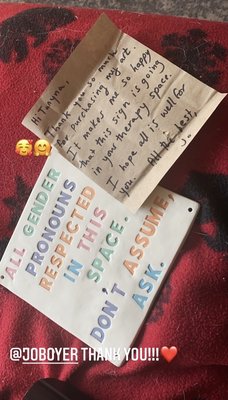 Hi Tanyna,
Thank you so much
for purchasing my art
It makes me so happy
that this sign is going
in your therapy space.
I hope all is well for
you
All the best,
Jo
ALL GENDER
PRONOUNS
RESPECTED
IN THIS
SPACE.
DON'T ASSUME,
ASK.
@JOBOYER THANK YOU!!!❤️